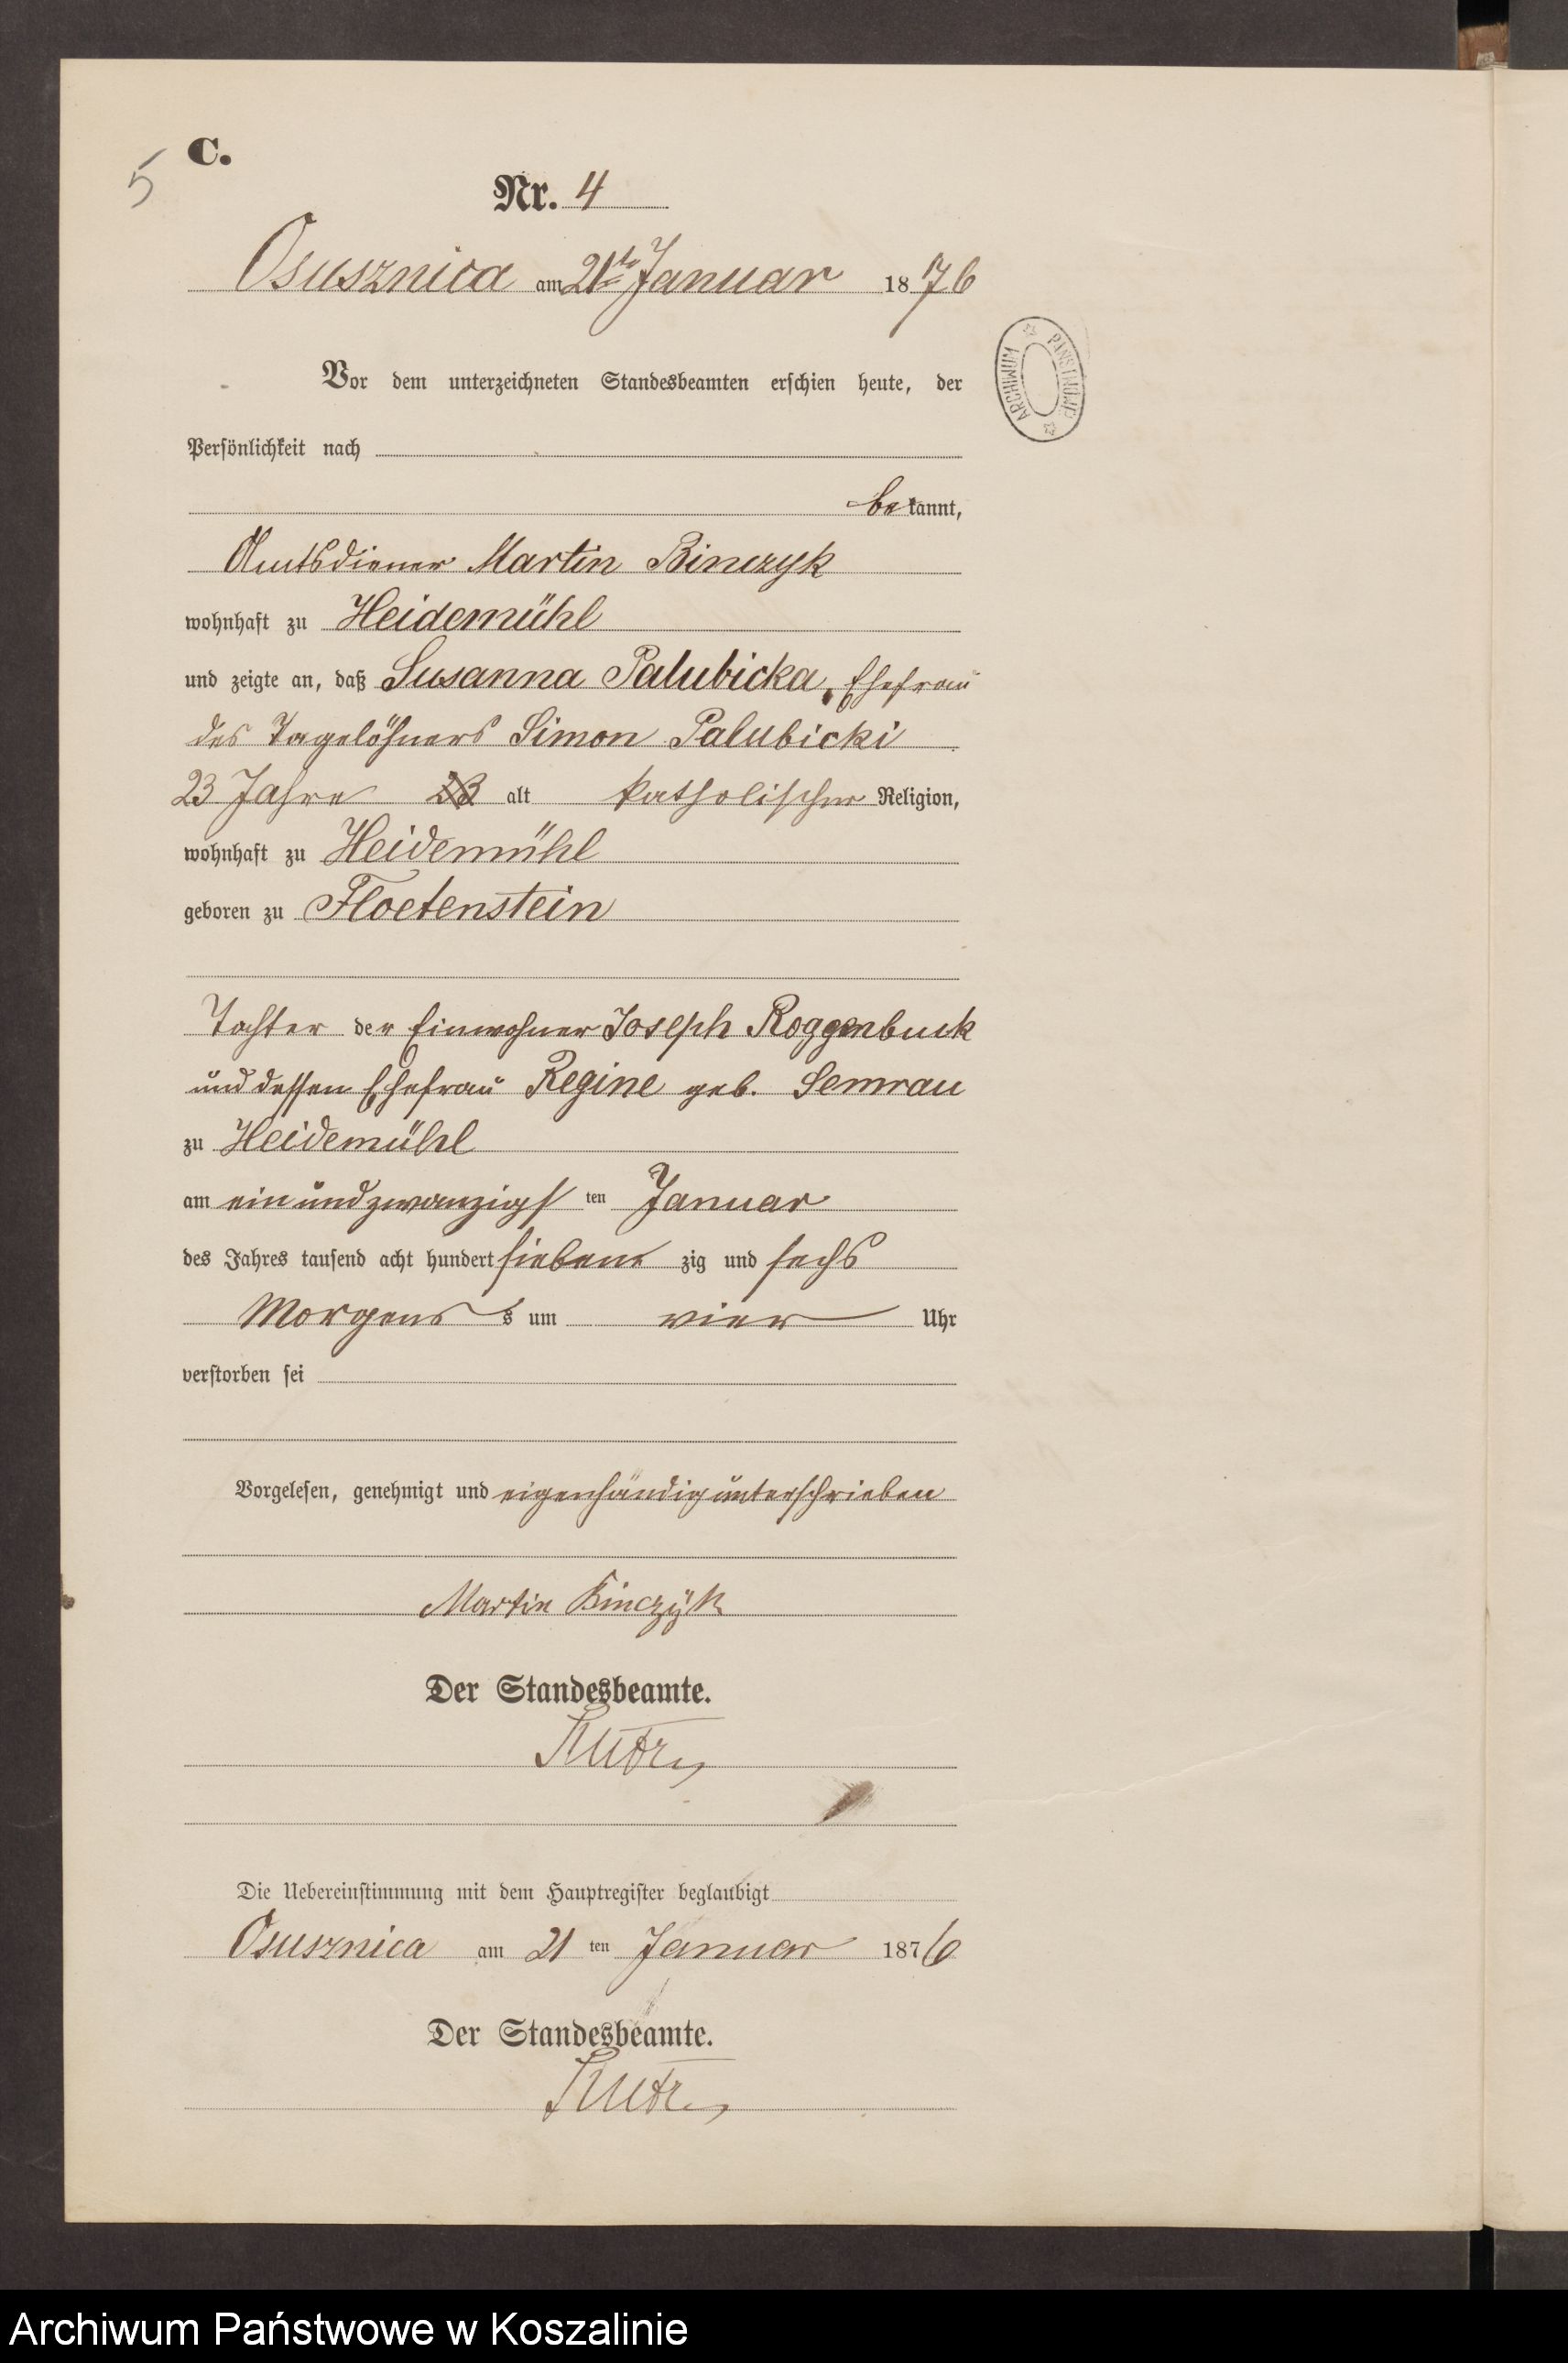 C.
5
Nr. 4
Osusznica am 21ten Januar 1876
Vor dem unterzeichneten Standesbeamten erschien heute, der
Persönlichkeit nach
bekannt,
Amtsdiener Martin Binczyk
wohnhaft zu Heidemühl
und zeigte an, daß Susanna Palubicka, Ehefrau
des Tagelöhners Simon Palubicki
23 Jahre 23 alt katholischer Religion,
wohnhaft zu Heidemühl
geboren zu Floetenstein
Tochter der Einwohner Joseph Roggenbuck
und dessen Ehefrau Regine geb. Semrau
zu Heidemühl
am ein und zwanzigs ten Januar
des Jahres tausend acht hundert sieben zig und sechs
Morgens s um vier Uhr
verstorben sei
Vorgelesen, genehmigt und eigenhändig unterschrieben
Martin Binczÿk
Der Standesbeamte.
Die Uebereinstimmung mit dem Hauptregister beglaubigt
Osusznica am 21 ten Januar 1876
Der Standesbeamte.
ARCHIWUM PAŃSTWOWE
Archiwum Państwowe w Koszalinie